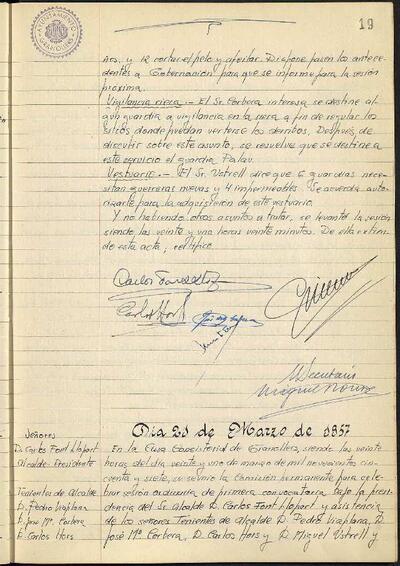 AYUNTAMIENTO
GRANOLLERS
19
Aos. y 12 cortar el pelo y afeitar. Dispone pasen los antece-
dentes a Gobernación para que se informe para la sesión
próxima.
Vigilancia riera.- El Sr. Corbera interesa se destine al-
gún guardia a vigilancia en la riera a fin de regular los
sitios donde puedan verterse los derribos. Después de
discutir sobre este asunto, se resuelve que se destine a
este servicio el guardia Palau.
Vestuario.- El Sr. Vstrell dice que 6 guardias nece-
sitan guerreras nuevas y 4 impermeables. Se acuerda auto-
rizarle para la adquisición de este vestuario.
Y no habiendo otros asuntos a tratar, se levantó la sesión
siendo las veinte y una horas veinte minutos. De ella extien-
do esta acta, certifico.
Carlos Font Llopart
Carlos Hors
Secretario
Día 21 de Marzo de 1957
Señores
D. Carlos Font Llopart
Alcalde-Presidente
Tenientes de Alcalde
D. Pedro Viaplana
D. José Mª. Corbera
D. Carlos Hors
En la Casa Consistorial de Granollers, siendo las veinte
horas del día veinte y uno de marzo de mil novecientos cin-
cuenta y siete, se reunió la Comisión permanente para cele-
brar sesión ordinaria de primera convocatoria, bajo la presi-
dencia del Sr. Alcalde D. Carlos Font Llopart y asistencia
de los señores Tenientes de Alcalde D. Pedro Viaplana, D.
José Mª. Corbera, D. Carlos Hors y D. Miguel Vstrell y